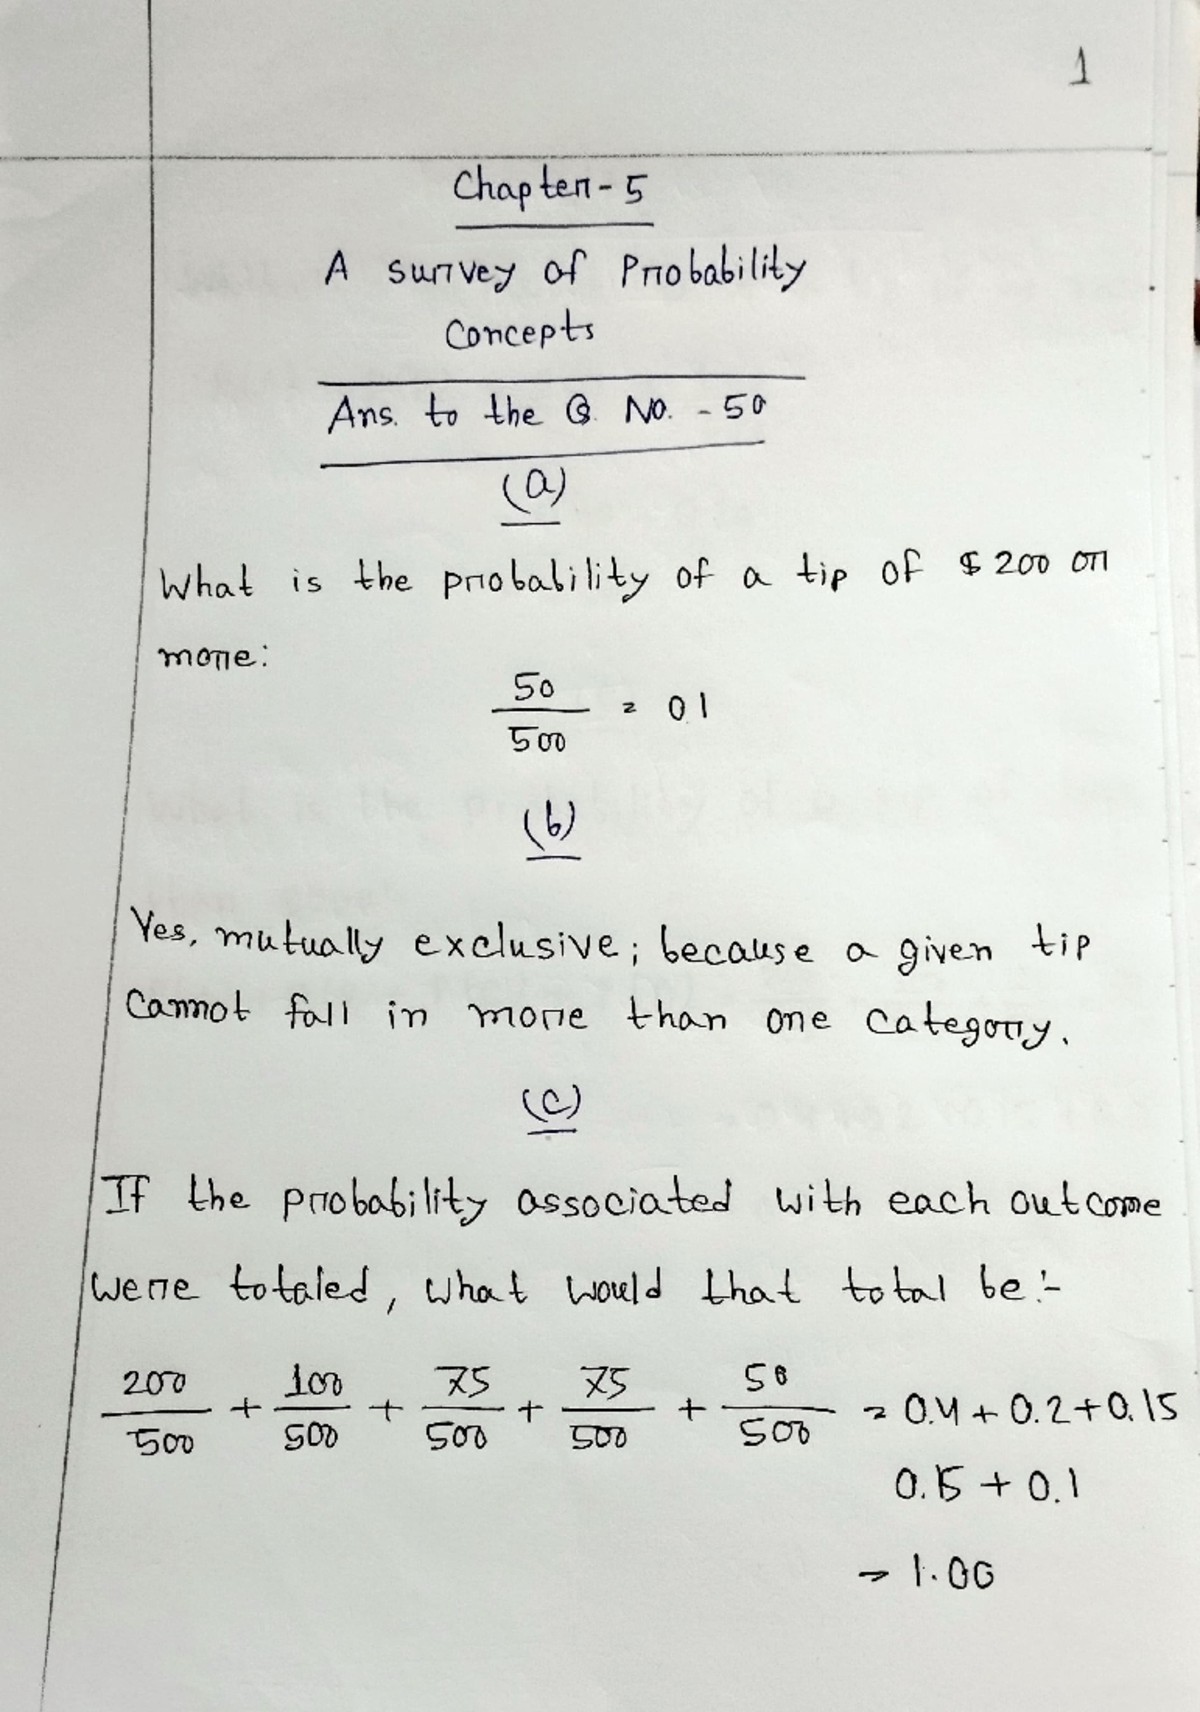 1
Chapter-5
A survey of Probability
Concepts
Ans. to the Q. No. - 50
(a)
What is the probability of a tip of $200 or
more:
50/500 = 0.1
(b)
Yes, mutually exclusive; because a given tip
cannot fall in more than one category.
(c)
If the probability associated with each outcome
were totaled, what would that total be:-
200/500 + 100/500 + 75/500 + 75/500 + 50/500 = 0.4 + 0.2 + 0.15
0.15 + 0.1
= 1.00